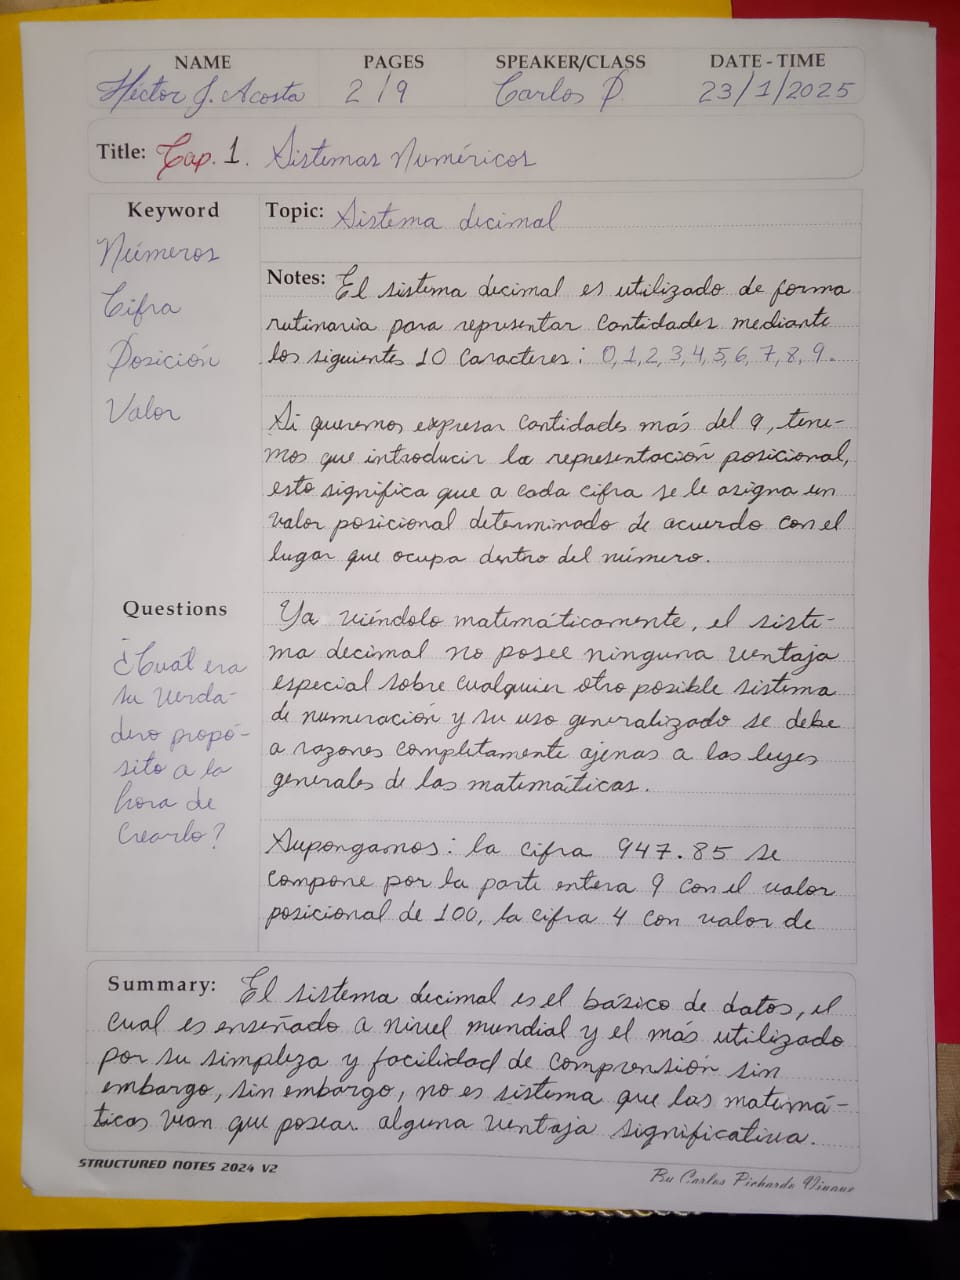 NAME PAGES SPEAKER/CLASS DATE - TIME
Héctor J. Acosta 2 / 9 Carlos P. 23/1/2025
Title: Cap. 1. Sistemas Numéricos
Keyword
Números
Cifra
Posición
Valor
Topic: Sistema decimal
Notes: El sistema decimal es utilizado de forma
rutinaria para representar cantidades mediante
los siguientes 10 caracteres: 0,1,2,3,4,5,6,7,8,9.
Si queremos expresar cantidades más del 9, tene-
mos que introducir la representación posicional,
esto significa que a cada cifra se le asigna un
valor posicional determinado de acuerdo con el
lugar que ocupa dentro del número.
Questions
¿Cuál era
su verda-
dero propó-
sito a la
hora de
crearlo?
Ya viéndolo matemáticamente, el siste-
ma decimal no posee ninguna ventaja
especial sobre cualquier otro posible sistema
de numeración y su uso generalizado se debe
a razones completamente ajenas a las leyes
generales de las matemáticas.
Supongamos: la cifra 947.85 se
compone por la parte entera 9 con el valor
posicional de 100, la cifra 4 con valor de
Summary: El sistema decimal es el básico de datos, el
cual es enseñado a nivel mundial y el más utilizado
por su simpleza y facilidad de comprensión sin
embargo, sin embargo, no es sistema que las matemá-
ticas vean que posean alguna ventaja significativa.
STRUCTURED NOTES 2024 V2
By Carlos Pichardo Viuque